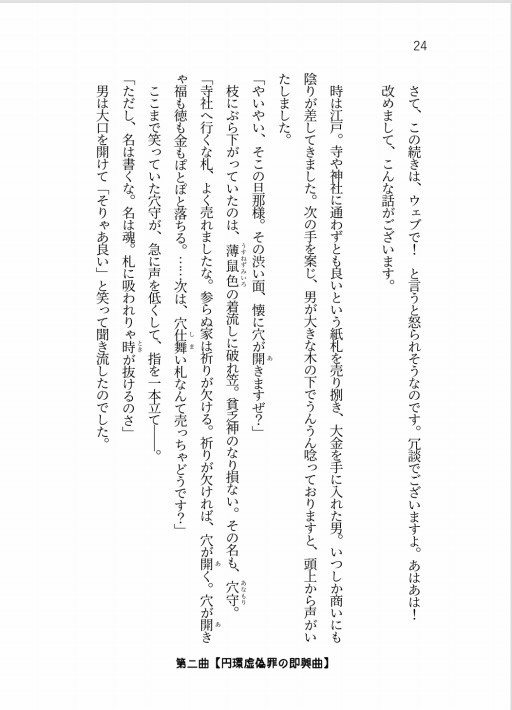 24
さて、この続きは、ウェブで！　と言うと怒られそうなのです。冗談でございますよ。あはあは！
改めまして、こんな話がございます。
時は江戸。寺や神社に通わずとも良いという紙札を売り捌き、大金を手に入れた男。いつしか商いにも
陰りが差してきました。次の手を案じ、男が大きな木の下でうんうん唸っておりますと、頭上から声がい
たしました。
「やいやい、そこの旦那様。その渋い面、懐に穴が開きますぜ？」
枝にぶら下がっていたのは、薄鼠色の着流しに破れ笠。貧乏神のなり損ない。その名も、穴守。
「寺社へ行くな札、よく売れましたな。参らぬ家は祈りが欠ける。祈りが欠ければ、穴が開く。穴が開き
ゃ福も徳も金もぽとぽと落ちる。……次は、穴仕舞い札なんて売っちゃどうです？」
ここまで笑っていた穴守が、急に声を低くして、指を一本立て――。
「ただし、名は書くな。名は魂。札に吸われりゃ時が抜けるのさ」
男は大口を開けて「そりゃあ良い」と笑って聞き流したのでした。
第二曲【円環虚偽罪の即興曲】